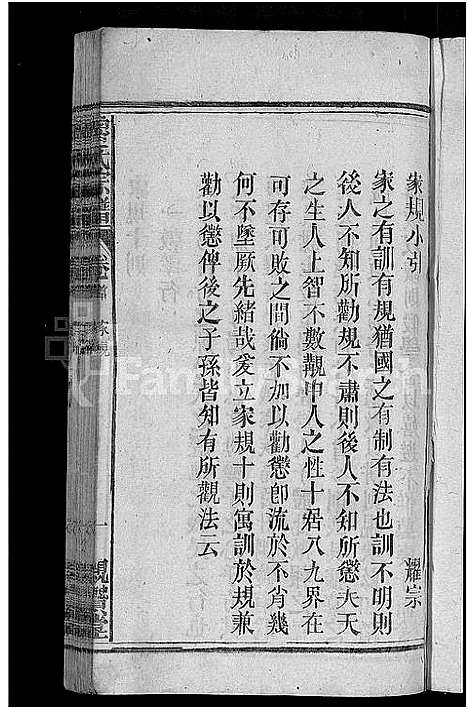 家規小引　耀宗
家之有訓有規猶國之有制有法也訓不明則
後人不知所勸規不肅則後人不知所懲夫天
之生人上智不數覯中人之性十居八九界在
可存可敗之間倘不加以勸懲卽流於不肖幾
何不墜厥先緒哉爰立家規十則寓訓於規兼
勸以懲俾後之子孫皆知有所觀法云
氏宗譜 卷首 家規 一